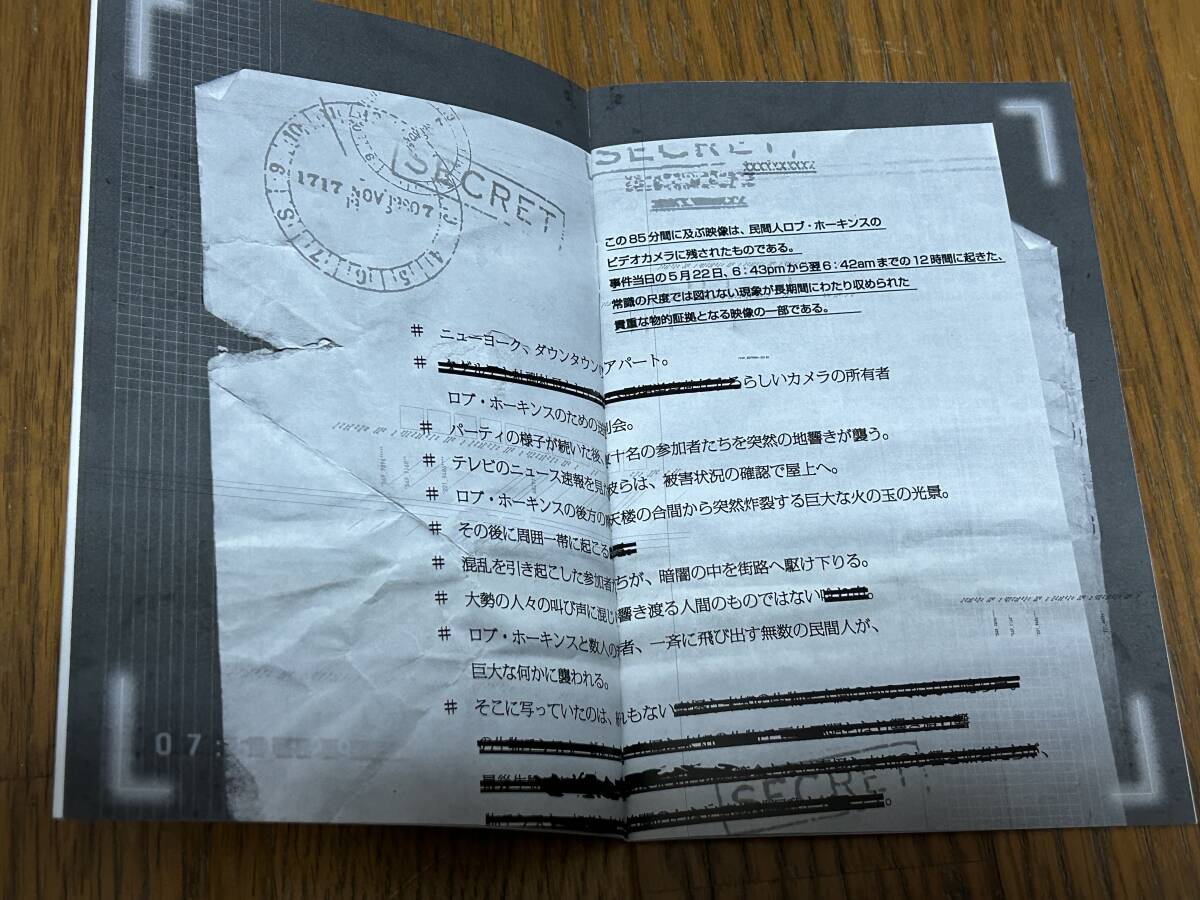 SECRET
1717 NOV
SECRET
この85分間に及ぶ映像は、民間人ロブ・ホーキンスの
ビデオカメラに残されたものである。
事件当日の5月22日、6：43pmから翌6：42amまでの12時間に起きた、
常識の尺度では図れない現象が長期間にわたり収められた
貴重な物的証拠となる映像の一部である。
# ニューヨーク、ダウンタウンのアパート。
# らしいカメラの所有者
ロブ・ホーキンスのための送別会。
# パーティの様子が続いた後、数十名の参加者たちを突然の地響きが襲う。
# テレビのニュース速報を見た彼らは、被害状況の確認で屋上へ。
# ロブ・ホーキンスの後方の摩天楼の合間から突然炸裂する巨大な火の玉の光景。
# その後に周囲一帯に起こる
# 混乱を引き起こした参加者たちが、暗闇の中を街路へ駆け下りる。
# 大勢の人々の叫び声に混じり響き渡る人間のものではない 。
# ロブ・ホーキンスと数人の 者、一斉に飛び出す無数の民間人が、
巨大な何かに襲われる。
# そこに写っていたのは、紛れもない
、
。
SECRET
07: